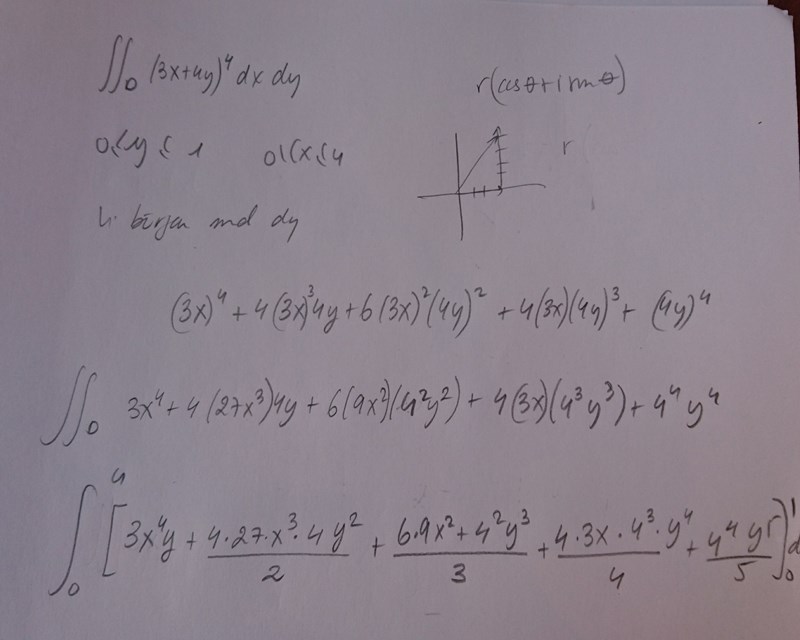 ∬_D (3x+4y)^4 dx dy
r(cosθ+i sinθ)
0≤y≤1 0≤x≤4
r
börjar med dy
(3x)^4 + 4(3x)^3 4y + 6(3x)^2 (4y)^2 + 4(3x)(4y)^3 + (4y)^4
∬_D 3x^4 + 4(27x^3)4y + 6(9x^2)(4^2y^2) + 4(3x)(4^3y^3) + 4^4y^4
∫_0^4 [3x^4y + (4·27·x^3·4y^2)/2 + (6·9x^2+4^2y^3)/3 + (4·3x·4^3·y^4)/4 + (4^4y^5)/5]_0^1 d